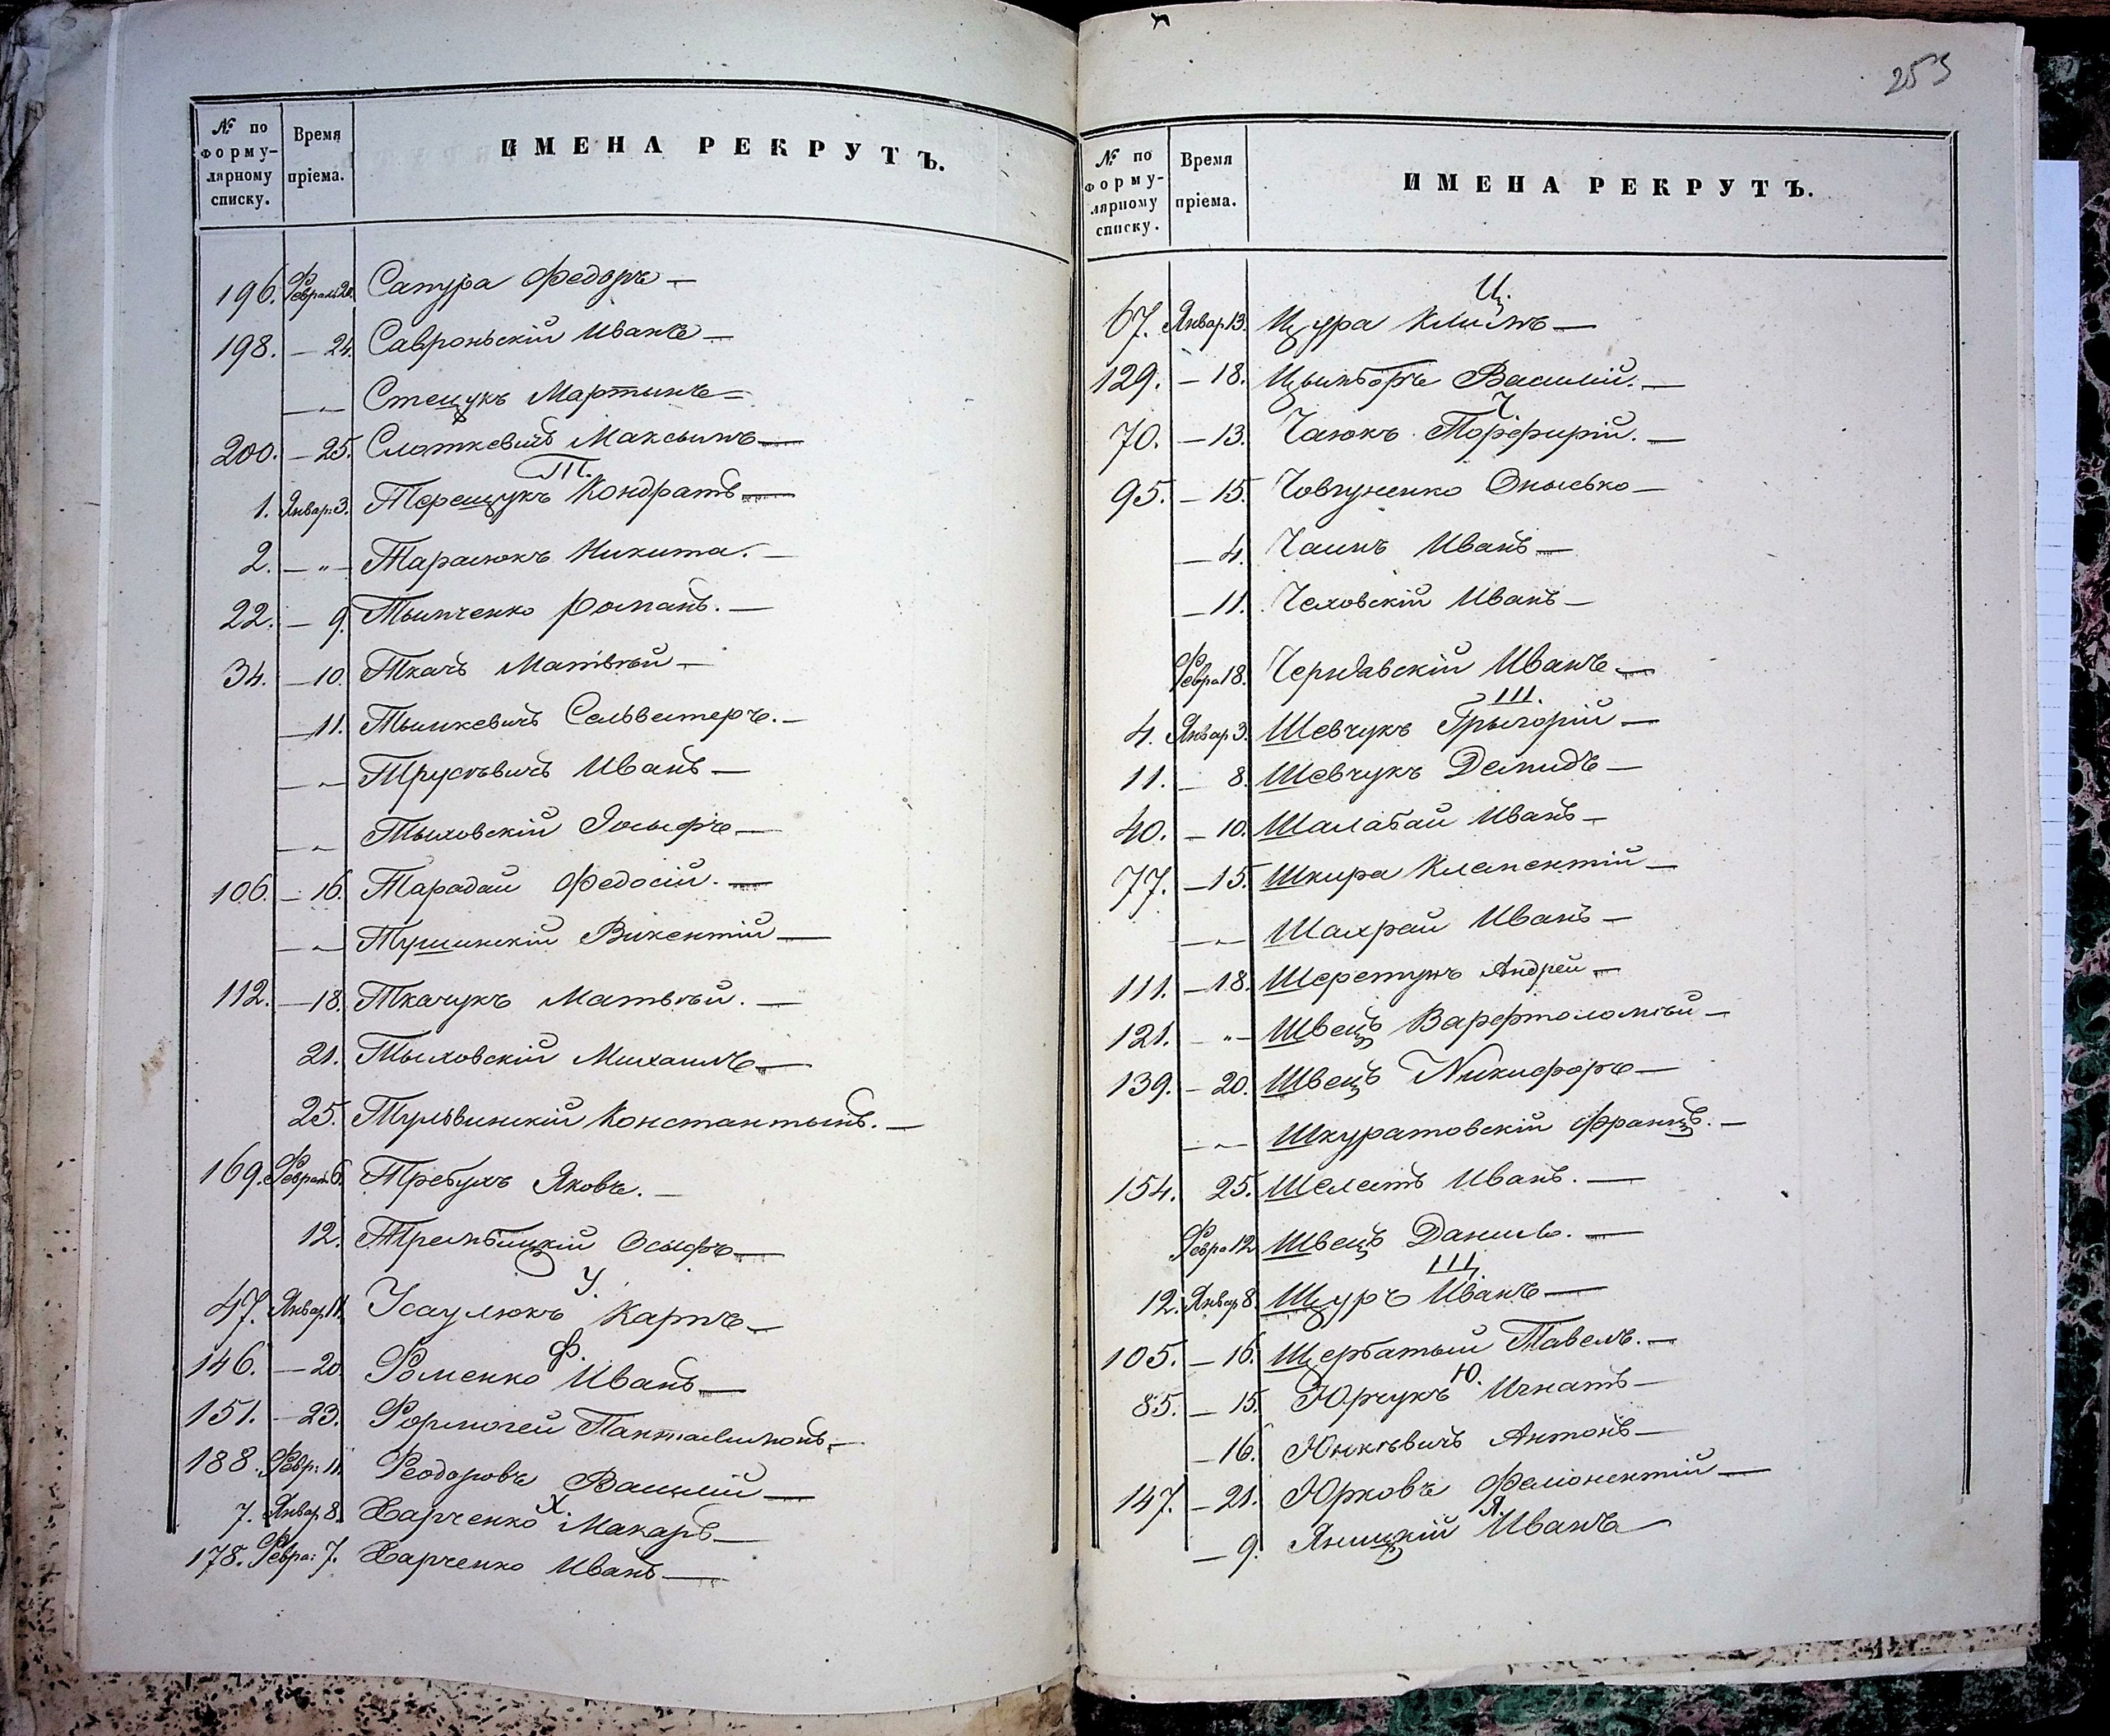 № по формулярному списку. Время пріема. ИМЕНА РЕКРУТЪ.
196. Февраль 20. Сапура Федоръ —
198. — 24. Савроньскій Иванъ —
— „ — Стецукъ Мартинъ —
200. — 25. Слоткевичъ Максымъ —
Т.
1. Январ: 3. Терещукъ Кондратъ —
2. — „ — Тарасюкъ Никита. —
22. — 9. Тымченко Романъ. —
34. — 10. Ткачъ Матвѣй —
— 11. Тышкевичъ Сельвестеръ. —
— „ — Трусѣвичъ Иванъ —
— „ — Тыховскій Іосыфъ —
106. — 16. Тарадай Федосій. —
— „ — Тушинскій Викентій —
112. — 18. Ткачукъ Матвѣй. —
21. Тыховскій Михаилъ —
25. Тульвинскій Константынъ. —
169. Феврал 6. Требухъ Яковъ. —
12. Трембицкій Осыфъ —
У.
47. Январ. 11. Усаулюкъ Карпъ —
Ф.
146. — 20. Фоменко Иванъ —
151. — 23. Формогей Панталимонъ —
188. Февр: 11. Феодоровъ Василій —
Х.
7. Январ. 8. Харченко Макаръ —
178. Февра: 7. Харченко Иванъ —
253
№ по формулярному списку. Время пріема. ИМЕНА РЕКРУТЪ.
Ц.
67. Январ. 13. Цура Климъ —
129. — 18. Цымборъ Василій. —
Ч.
70. — 13. Чаюкъ Порфирій. —
95. — 15. Човгуненко Онысько —
— 4. Иванъ —
— 11. Чеховскій Иванъ —
Февра 18. Чернявскій Иванъ —
Ш.
4. Январ 3. Шевчукъ Грыгорій —
11. — 8. Шевчукъ Демидъ —
40. — 10. Шалабай Иванъ —
77. — 15. Шкира Клементій —
— „ — Шахрай Иванъ —
111. — 18. Шеретукъ Андрей —
121. — „ — Швецъ Варфтоломѣй —
139. — 20. Швецъ Никифоръ —
— „ — Шкуратовскій Францъ. —
154. 25. Шелестъ Иванъ. —
Февра 12 Швецъ Данило. —
Щ.
12. Январ 8. Щуръ Иванъ —
105. — 16. Щербатый Павелъ. —
Ю.
85. — 15. Юрчукъ Игнатъ —
— 16. Юнкѣвичъ Антонъ —
147. — 21. Юрковъ —
Я.
— 9. Яницкій Иванъ